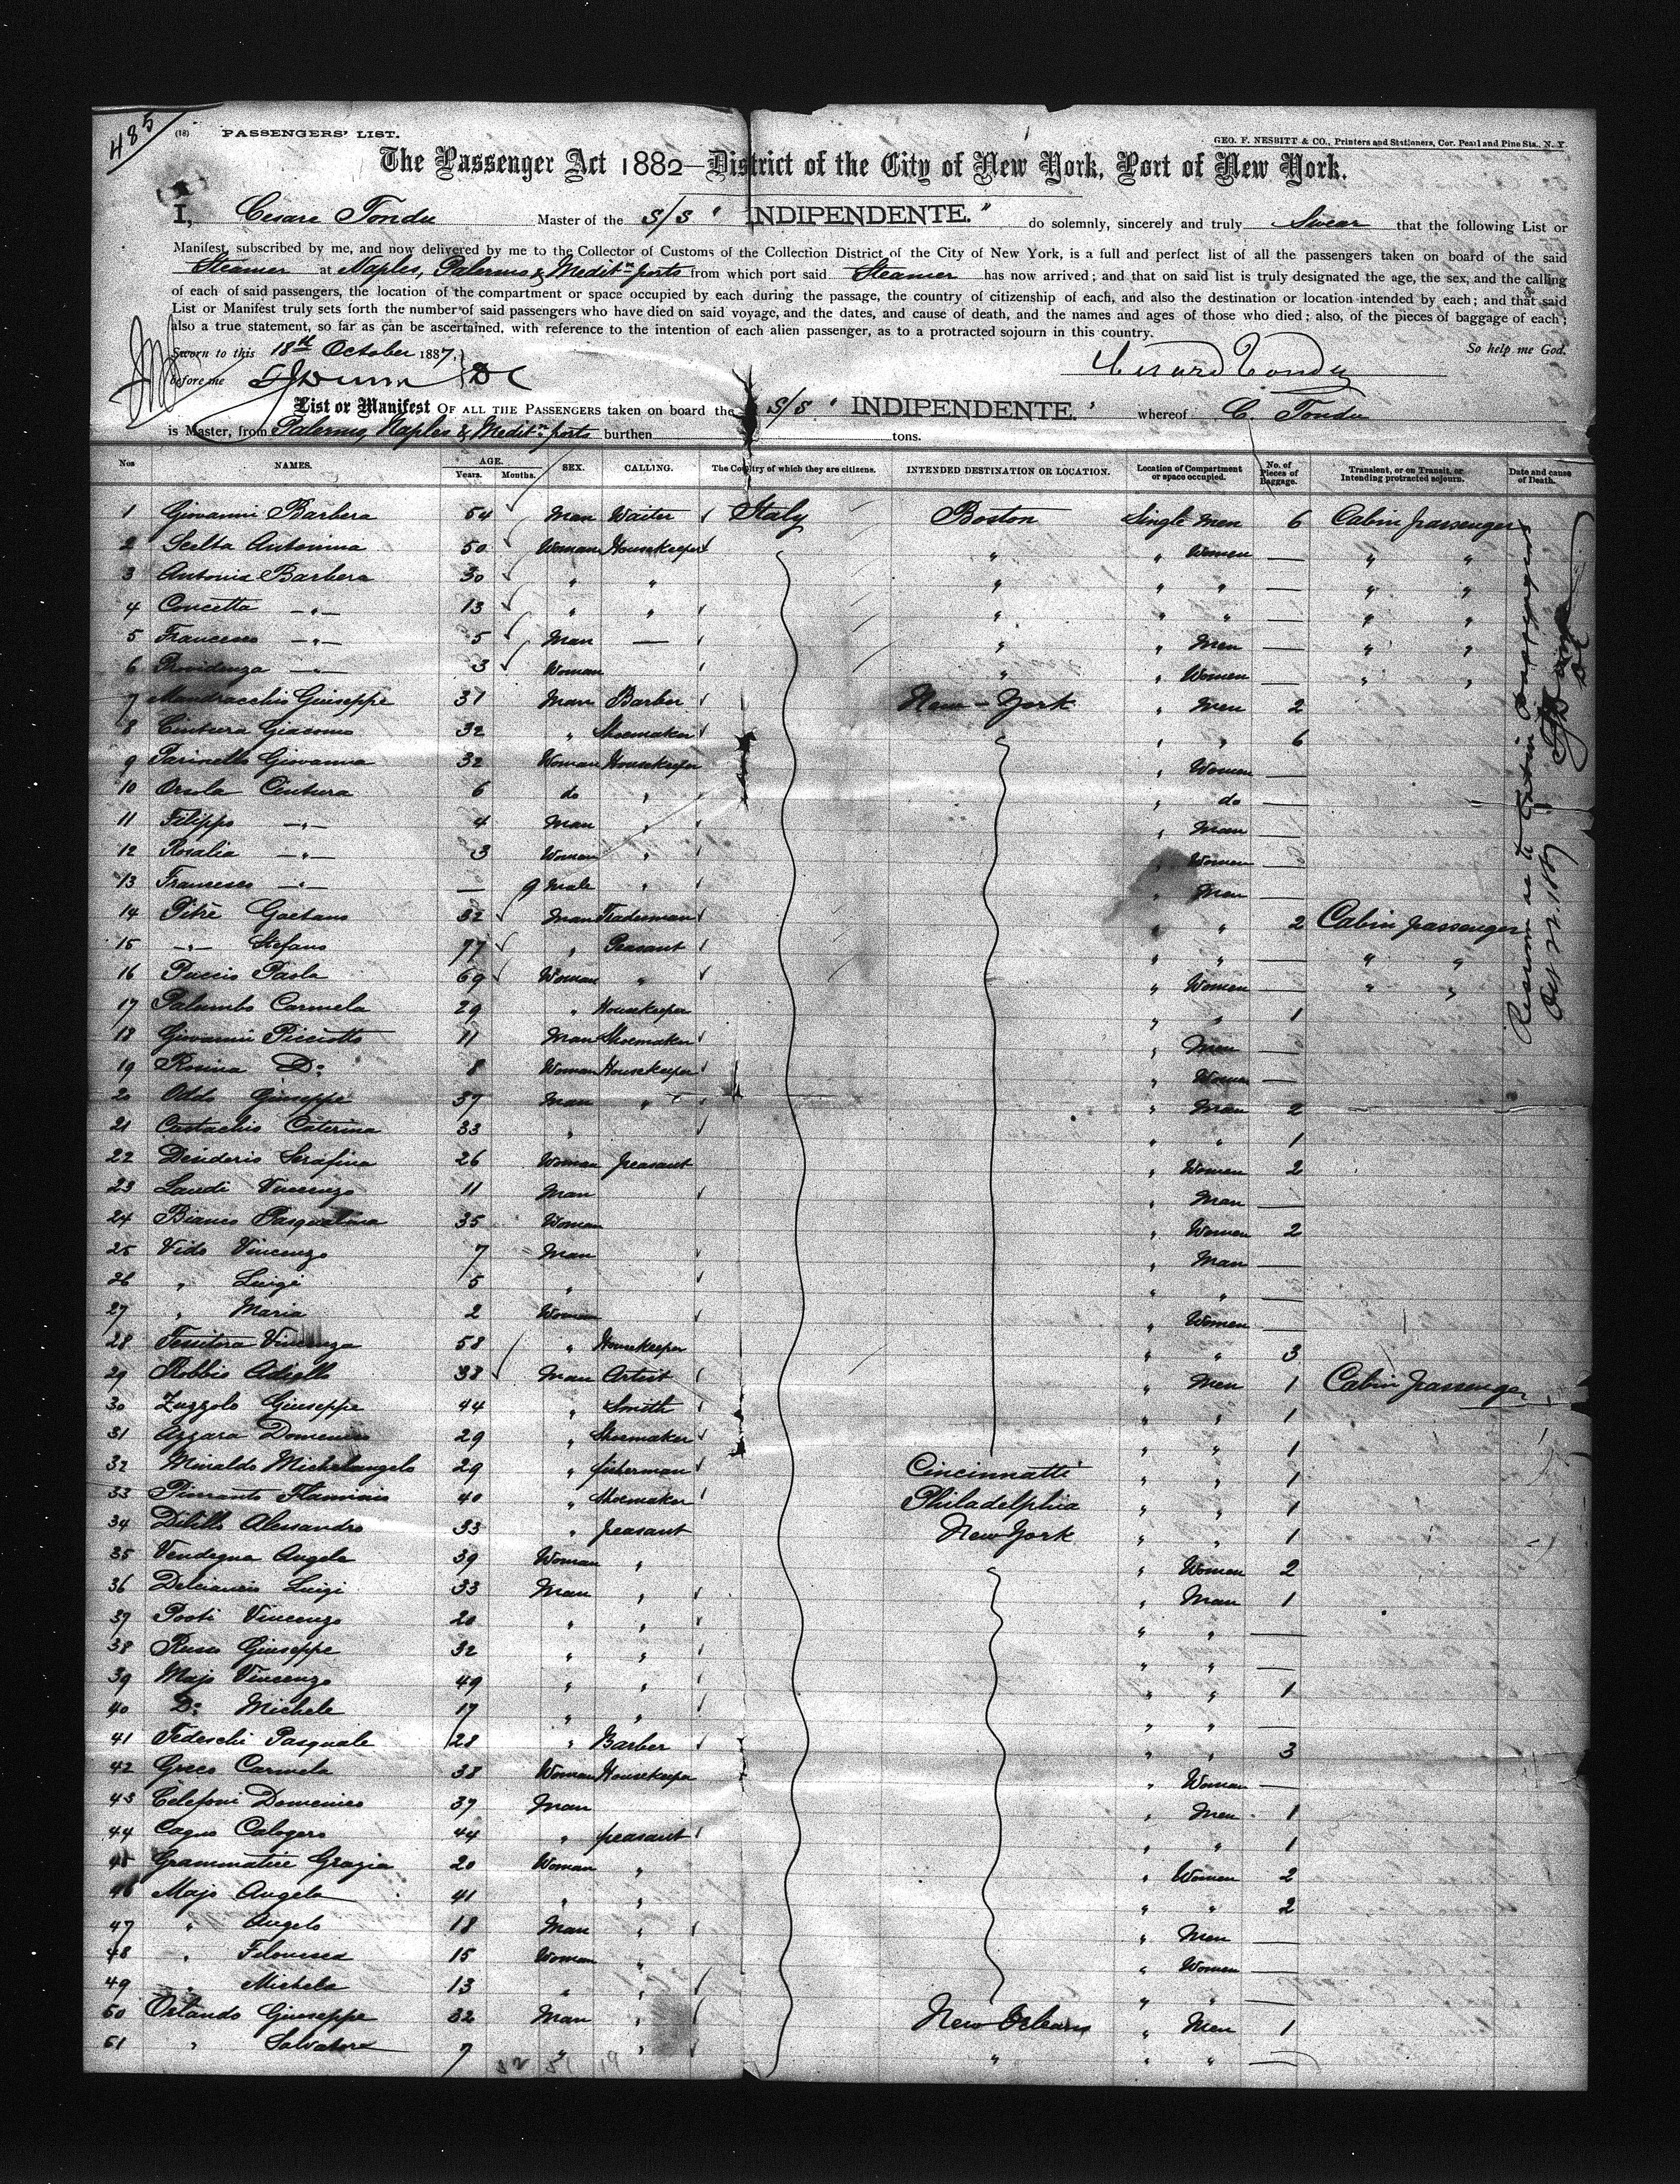 485
(18) PASSENGERS' LIST.
GEO. F. NESBITT & CO., Printers and Stationers, Cor. Pearl and Pine Sts., N. Y.
The Passenger Act 1882—District of the City of New York, Port of New York.
I, Cesare Tondu Master of the S/S " INDIPENDENTE." do solemnly, sincerely and truly Swear that the following List or
Manifest, subscribed by me, and now delivered by me to the Collector of Customs of the Collection District of the City of New York, is a full and perfect list of all the passengers taken on board of the said
Steamer at Naples, Palermo & Meditn ports from which port said Steamer has now arrived; and that on said list is truly designated the age, the sex, and the calling
of each of said passengers, the location of the compartment or space occupied by each during the passage, the country of citizenship of each, and also the destination or location intended by each; and that said
List or Manifest truly sets forth the number of said passengers who have died on said voyage, and the dates, and cause of death, and the names and ages of those who died; also, of the pieces of baggage of each;
also a true statement, so far as can be ascertained, with reference to the intention of each alien passenger, as to a protracted sojourn in this country.
Sworn to this 18th October 1887, So help me God.
before me
List or Manifest OF ALL THE PASSENGERS taken on board the S/S " INDIPENDENTE. " whereof C. Tondu
is Master, from Palermo, Naples & Meditn ports burthen tons.
Nos NAMES. AGE. Years. Months. SEX. CALLING. The Country of which they are citizens. INTENDED DESTINATION OR LOCATION. Location of Compartment or space occupied. No. of Pieces of Baggage. Transient, or on Transit, or Intending protracted sojourn. Date and cause of Death.
1 Giovanni Barbera 54 Man Waiter Italy Boston Single Men 6 Cabin passenger
2 Scelta Antonina 50 Woman Housekeeper " " Women — " "
3 Antonia Barbera 30 " " " " " — " "
4 Concetta —"— 13 " " " " " — " "
5 Francesco —"— 5 Man — " " Men — " "
6 Providenza —"— 3 Woman " " Women — " "
7 Mandracchio Giuseppe 31 Man Barber New-York " Men 2
8 Cintura Giacomo 32 " Shoemaker " " 6
9 Parinello Giovanna 32 Woman Housekeeper " Women —
10 Orsola Cintura 6 do " " do —
11 Filippo —"— 4 Man " " Man —
12 Rosalia —"— 3 Woman " " Women —
13 Francesco —"— — 9 Male " " Men —
14 Pitrè Gaetano 32 Man Tradesman " " 2 Cabin passenger
15 —"— Stefano 77 " Peasant " " — " "
16 Puccio Paola 69 Woman " " Women — " "
17 Palumbo Carmela 29 " Housekeeper " " 1
18 Giovanni Picciotto 11 Man Shoemaker " Men —
19 Rosina Do 8 Woman Housekeeper " Women —
20 Oddo Giuseppe 37 Man " " Man 2
21 Castachio Caterina 33 " " " 1
22 Desiderio Serafina 26 Woman peasant " Women 2
23 Landi Vincenzo 11 Man " Man —
24 Bianco Pasqualina 35 Woman " Women 2
25 Vido Vincenzo 7 Man " Man —
26 " Luigi 5 " " " —
27 " Maria 2 Woman " Women —
28 Tessitora Vincenza 58 " Housekeeper " " 3
29 Robbio Adiello 38 Man Artist " Men 1 Cabin passenger
30 Zuzzolo Giuseppe 44 " Smith " " 1
31 Azzara Domenico 29 " Shoemaker " " 1
32 Minaldo Michelangelo 29 " fisherman Cincinnatti " " 1
33 Pierranto Flaminio 40 " Shoemaker Philadelphia " " 1
34 Dilillo Alessandro 33 " peasant New York " " 1
35 Vendegna Angela 39 Woman " " Women 2
36 Delciancio Luigi 33 Man " " Man 1
37 Pooti Vincenzo 20 " " " " —
38 Russo Giuseppe 32 " " " " —
39 Majo Vincenzo 49 " " " " 1
40 Do Michele 17 " " " " —
41 Tedeschi Pasquale 28 " Barber " " 3
42 Greco Carmela 38 Woman Housekeeper " Woman —
43 Celefoni Domenico 37 Man " Men 1
44 Cagno Calogero 44 " peasant " " 1
45 Grammatire Grazia 20 Woman " " Women 2
46 Majo Angela 41 " " " " 2
47 " Angelo 18 Man " " Men —
48 " Filomena 15 Woman " " Women —
49 " Michela 13 " " " " —
50 Orlando Giuseppe 32 Man " New Orleans " Men 1
51 " Salvatore 7 " " " " " —